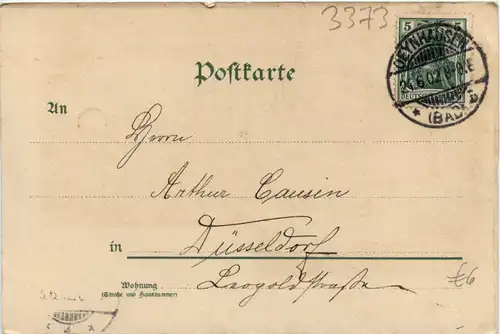 3373
5 5
OEYNHAUSEN
24.6.02
* (BAD) *
Postkarte
An
Herrn
Arthur Causin
in Düsseldorf
Wohnung
(Straße und Hausnummer)
Leopoldstraße
£6